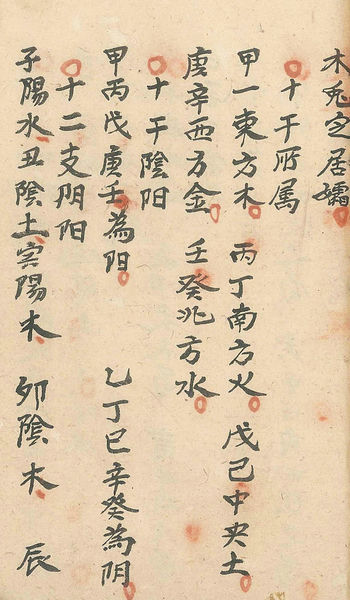 木之居孀
十干所属
甲一東方木 丙丁南方火 戊己中央土
庚辛西方金 壬癸北方水
十干陰阳
甲丙戊庚壬為阳 乙丁己辛癸為阴
十二支阴阳
子陽水丑陰土寅陽木 卯陰木 辰